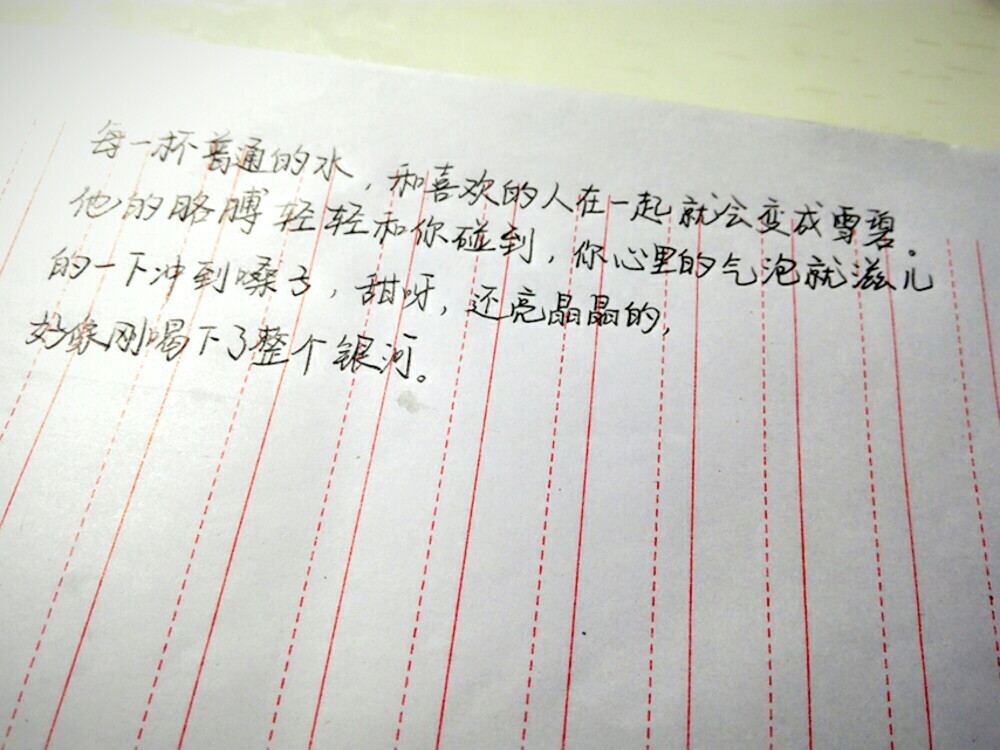 每一杯普通的水，和喜欢的人在一起就会变成雪碧。
他的胳膊轻轻和你碰到，你心里的气泡就滋儿
的一下冲到嗓子，甜呀，还亮晶晶的，
好像刚喝下了整个银河。